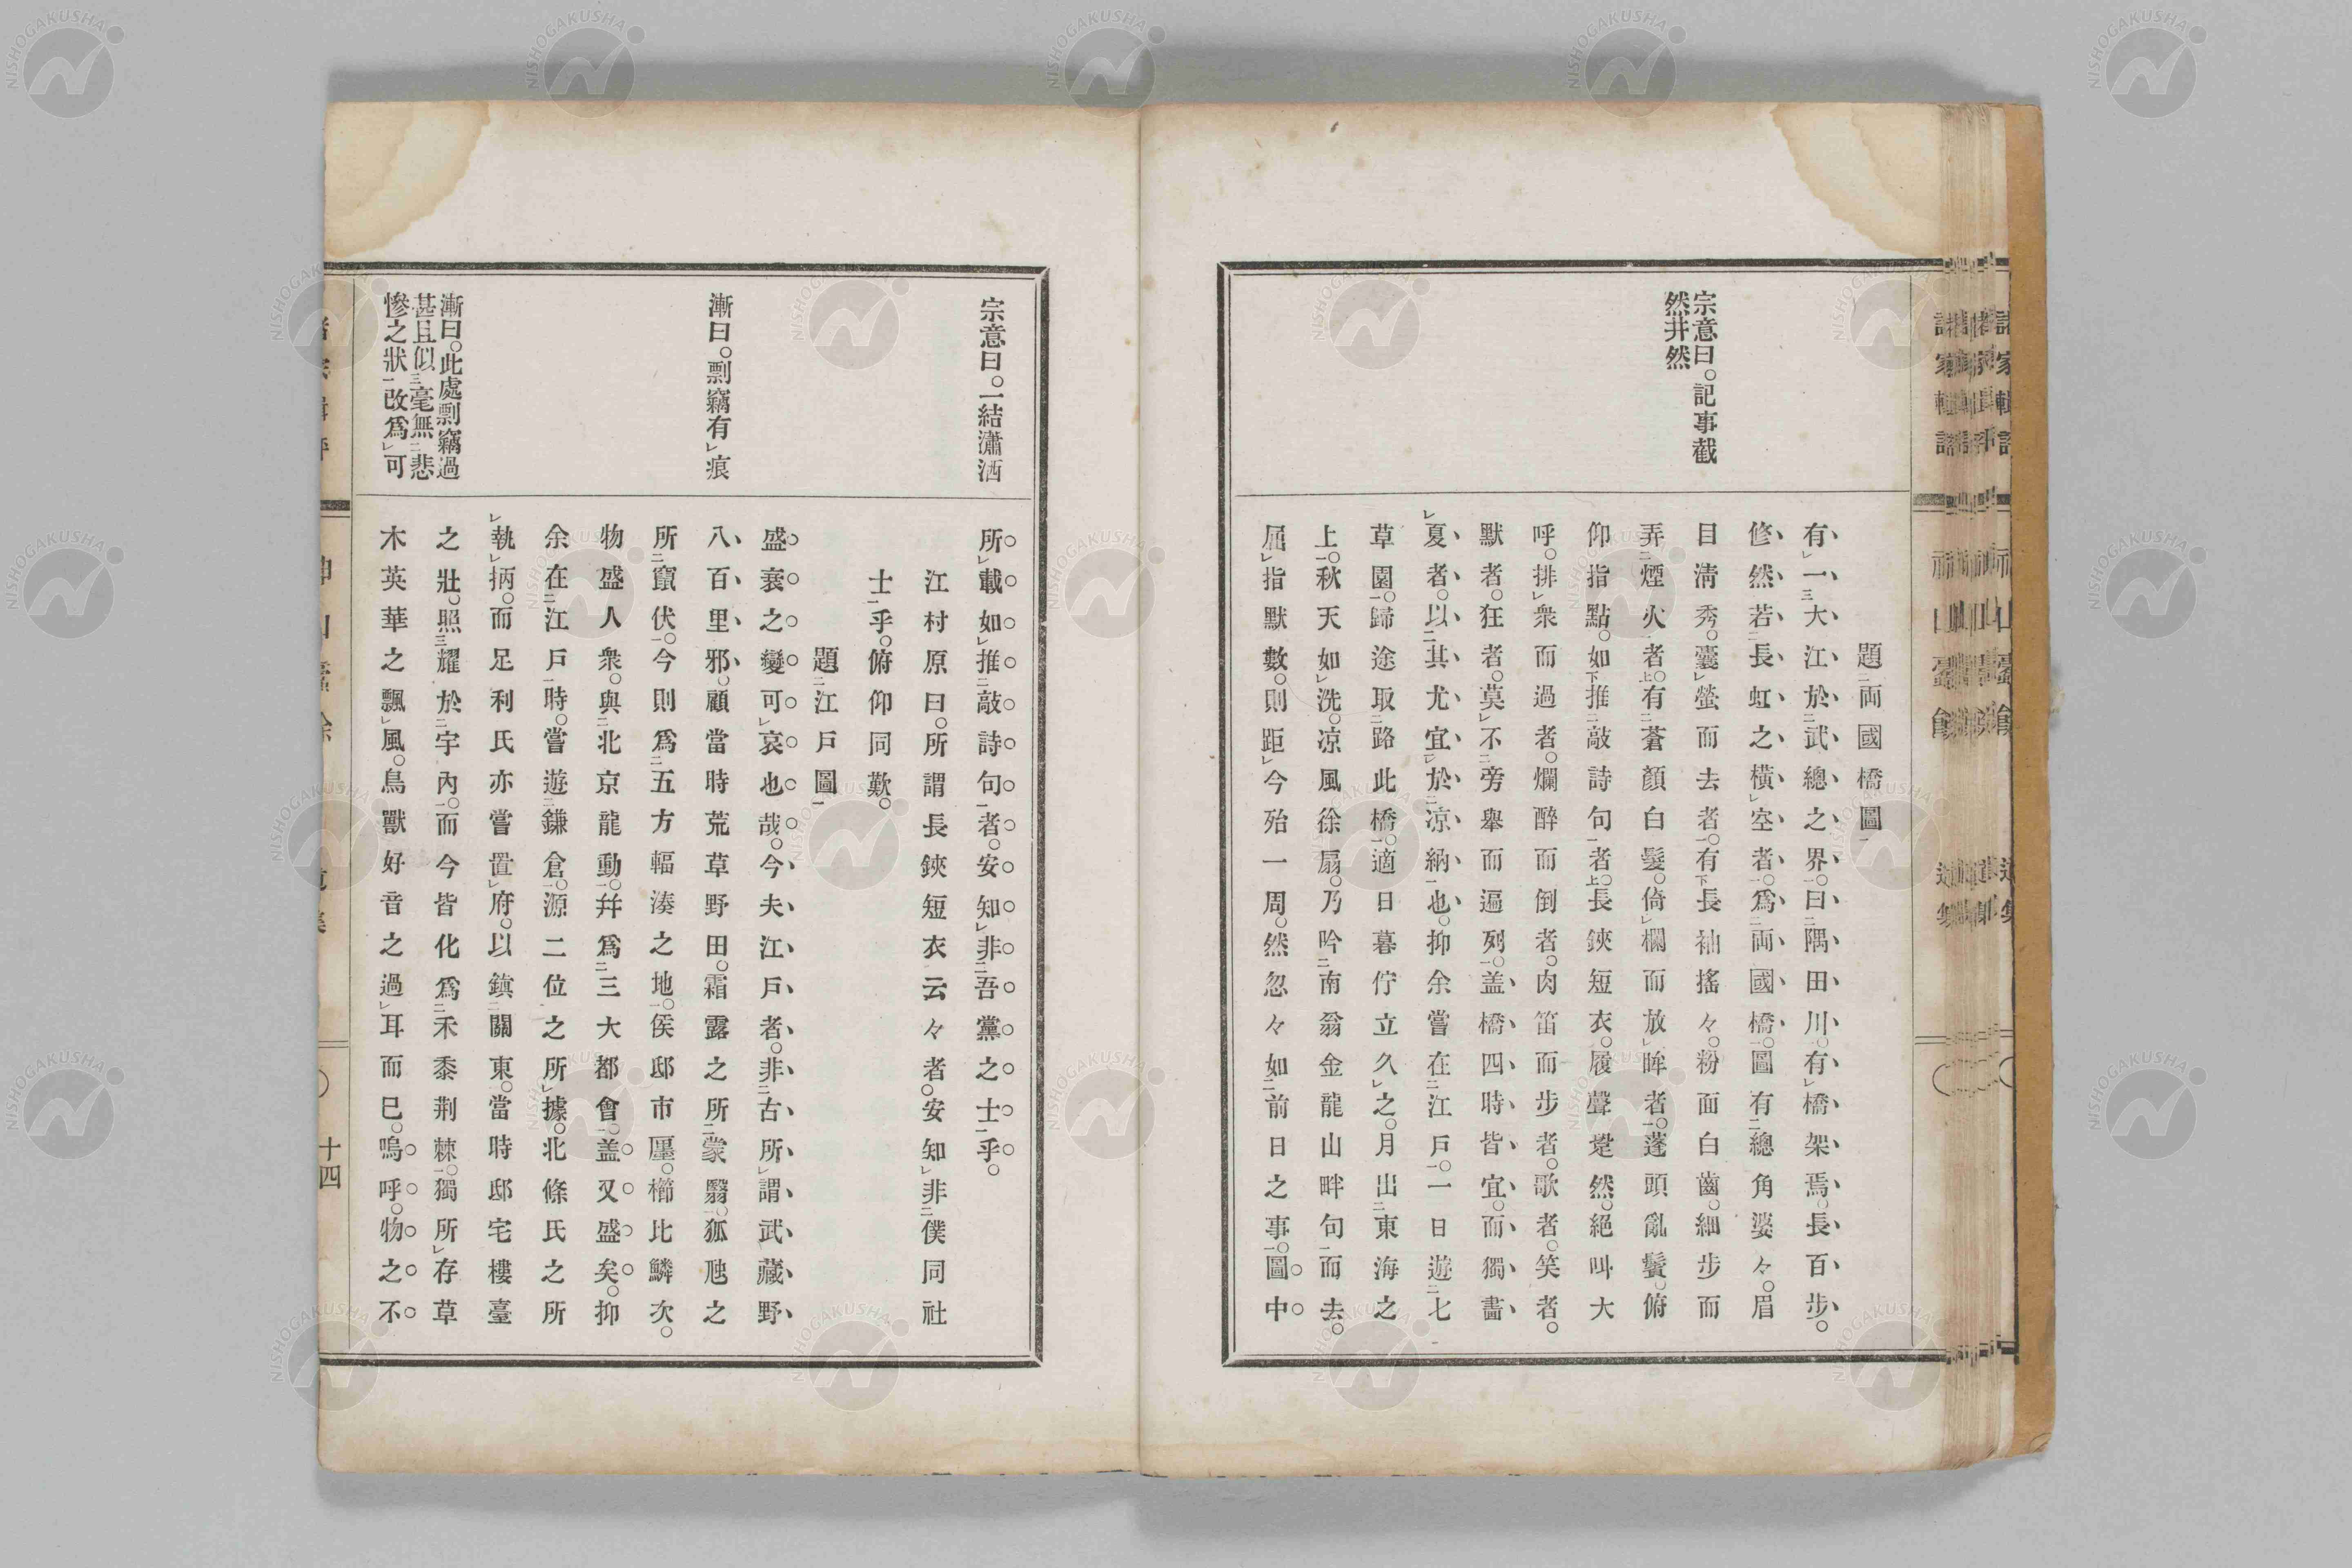 宗意曰。記事截
然井然
題二両國橋圖一
有レ一三大江於二武總之界一。曰二隅田川一。有レ橋架焉。長百步。
修然若二長虹之橫一レ空者。爲二両國橋一。圖有二總角婆々。眉
目淸秀。囊レ螢而去者一。有下長袖搖々。粉面白齒。細步而
弄二煙火一者上。有二蒼顏白髮。倚レ欄而放レ眸者一。蓬頭亂鬢。俯
仰指點。如下推二敲詩句一者上。長鋏短衣。履聲跫然。絕叫大
呼。排レ衆而過者。爛醉而倒者。肉笛而步者。歌者。笑者。
默者。狂者。莫レ不二旁舉而逼列一。盖橋四時皆宜。而獨畵
レ夏者。以二其尤宜一レ於二凉納一也。抑余嘗在二江戶一。一日遊二七
草園一。歸途取二路此橋一。適日暮佇立久レ之。月出二東海之
上一。秋天如レ洗。凉風徐扇。乃吟二南翁金龍山畔句一而去。
屈レ指默數。則距レ今殆一周。然忽々如二前日之事一。圖中
宗意曰。一結瀟洒
漸曰。剽竊有レ痕
漸曰。此處剽竊過
甚且似三毫無二悲
慘之狀一改爲レ可
所レ載如レ推二敲詩句一者。安知レ非二吾黨之士一乎。
江村原曰。所謂長鋏短衣云々者。安知レ非二僕同社
士一乎。俯仰同歎。
題二江戶圖一
盛衰之變可レ哀也哉。今夫江戶者。非二古所レ謂武藏野
八百里邪。顧當時荒草野田。霜露之所二蒙翳一。狐虺之
所二竄伏一。今則爲二五方輻湊之地一。侯邸市廛。櫛比鱗次。
物盛人衆。與二北京龍動一。幷爲二三大都會一。盖又盛矣。抑
余在二江戶一時。嘗遊二鎌倉一。源二位之所レ據。北條氏之所
レ執レ抦。而足利氏亦嘗置レ府。以鎮二關東一。當時邸宅樓臺
之壯。照三耀於二宇內一。而今皆化爲二禾黍荆棘一。獨所レ存草
木英華之飄レ風。鳥獸好音之過レ耳而已。嗚呼。物之不
十四